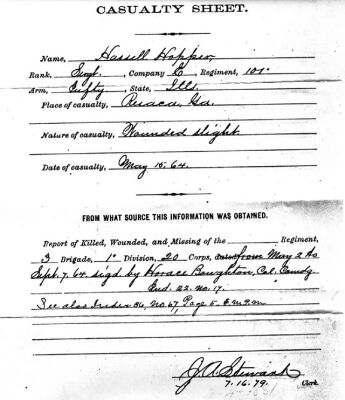 CASUALTY SHEET.
Name, Hassell Hopper,
Rank, Sergt., Company E, Regiment, 101"
Arm, Infty, State, Ills.
Place of casualty, Resaca, Ga.
Nature of casualty, Wounded slight
Date of casualty, May 15. 64.
FROM WHAT SOURCE THIS INFORMATION WAS OBTAINED.
Report of Killed, Wounded, and Missing of the Regiment,
3 Brigade, 1" Division, 20 Corps, dated from May 2 to
Sept. 7. 64. sigd. by Horace Boughton, Col. Comdg.
End. 22. No. 17.
See also Index 86, No 67, Page 5.
J. A. Stewart
7.16.79. Clerk.